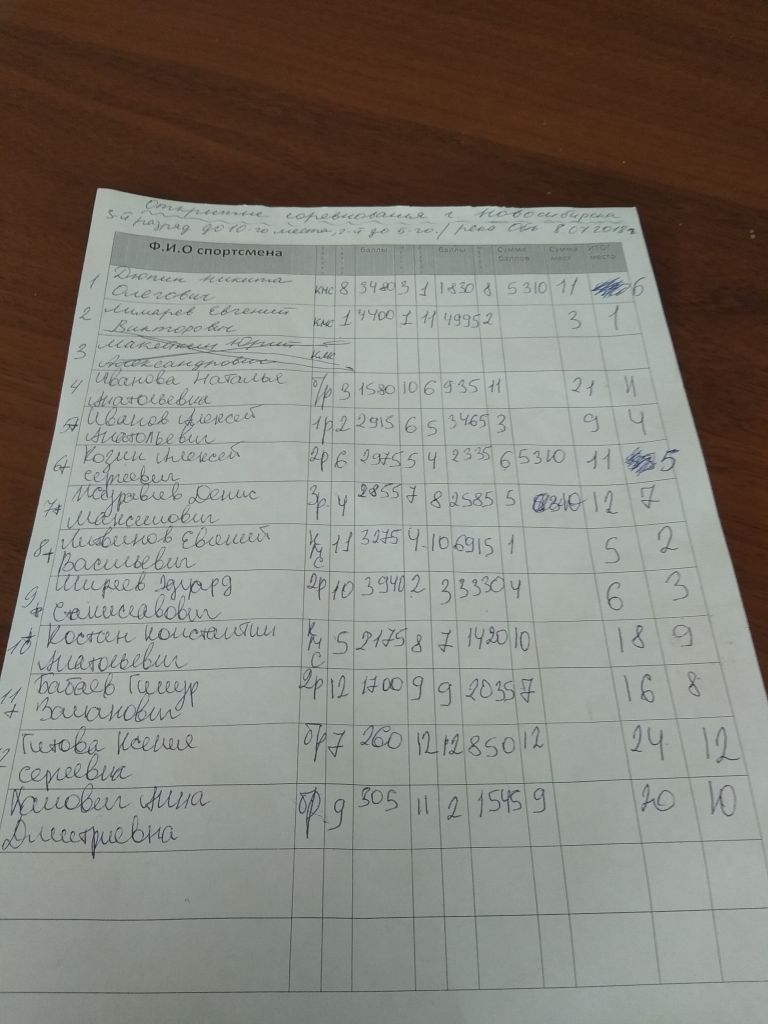 Открытые соревнования г. Новосибирска
3-й разряд до 10-го места, 2-й до 6-го. / река Обь 8.07.2018г
Ф.И.О спортсмена баллы баллы Сумма баллов Сумма мест ИТОГ место
1 Дюпин Никита Олегович кмс 8 3480 3 1 1830 8 5310 11 6
2 Лимарев Евгений Викторович кмс 1 4400 1 11 4995 2 3 1
3 Александрович кмс
4 Иванова Наталья Анатольевна б/р 3 1580 10 6 935 11 21 11
5 Иванов Алексей Анатольевич 1р 2 2915 6 5 3465 3 9 4
6 Козин Алексей Сергеевич 2р 6 2975 5 4 2335 6 5310 11 5
7 Денис Максимович 3р 4 2855 7 8 2585 5 12 7
8 Литвинов Евгений Васильевич КМС 11 3275 4 10 6915 1 5 2
9 Ширяев Эдуард Станиславович 2р 10 3940 2 3 3330 4 6 3
10 Костин Константин Анатольевич КМС 5 2175 8 7 1420 10 18 9
11 Бабаев Тимур Заманович 2р 12 1700 9 9 2035 7 16 8
Титова Ксения Сергеевна бр 7 260 12 12 850 12 24 12
Анна Дмитриевна бр 9 305 11 2 1545 9 20 10